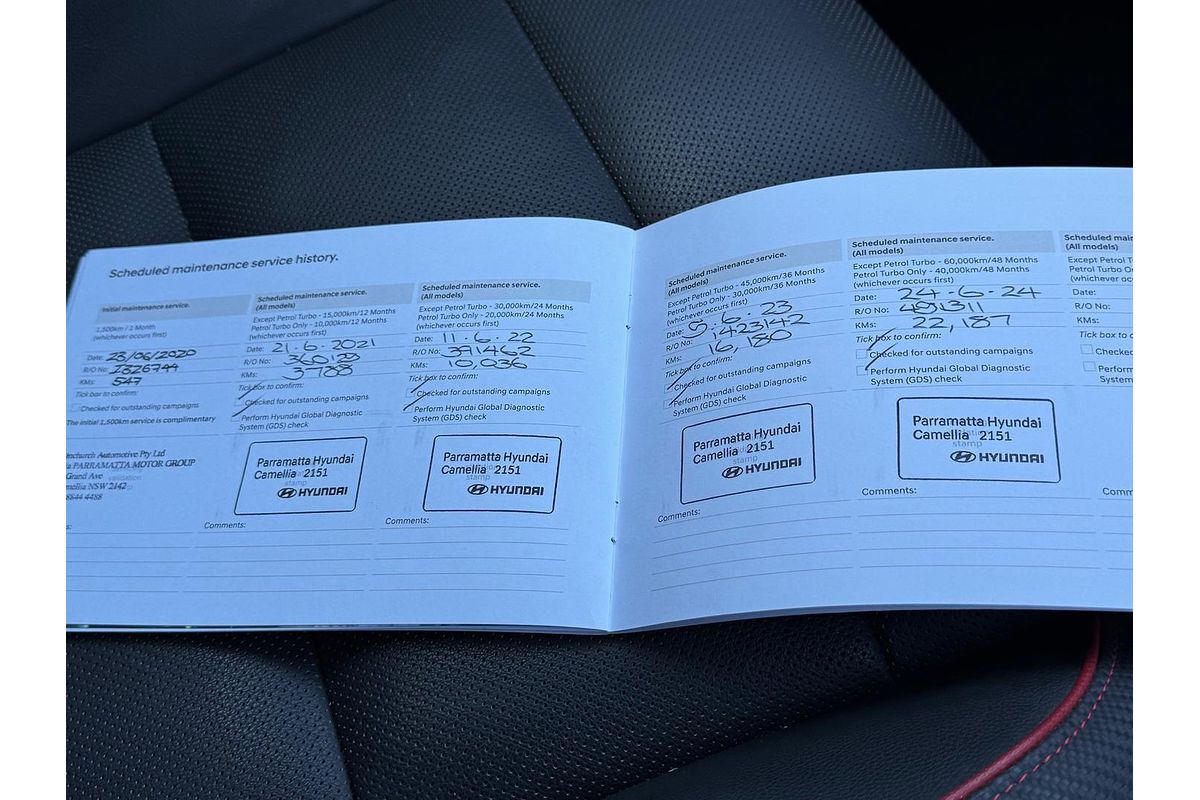 Scheduled maintenance service history.
Initial maintenance service.
1,500km / 1 Month
(whichever occurs first)
Date: 23/06/2020
R/O No:
KMs: 547
Tick box to confirm:
Checked for outstanding campaigns
The initial 1,500km service is complimentary
nchurch Automotive Pty Ltd
a PARRAMATTA MOTOR GROUP
Grand Ave
mellia NSW 2142
8844 4488
s:
Scheduled maintenance service.
(All models)
Except Petrol Turbo - 15,000km/12 Months
Petrol Turbo Only - 10,000km/12 Months
(whichever occurs first)
Date: 21.6.2021
R/O No: 360129
KMs: 3788
Tick box to confirm:
Checked for outstanding campaigns
Perform Hyundai Global Diagnostic
System (GDS) check
Parramatta Hyundai
Camellia 2151
stamp
HYUNDAI
Comments:
Scheduled maintenance service.
(All models)
Except Petrol Turbo - 30,000km/24 Months
Petrol Turbo Only - 20,000km/24 Months
(whichever occurs first)
Date: 11.6.22
R/O No: 391462
KMs: 10,036
Tick box to confirm:
Checked for outstanding campaigns
Perform Hyundai Global Diagnostic
System (GDS) check
Parramatta Hyundai
Camellia 2151
stamp
HYUNDAI
Comments:
Scheduled maintenance service.
(All models)
Except Petrol Turbo - 45,000km/36 Months
Petrol Turbo Only - 30,000km/36 Months
(whichever occurs first)
Date: 5.6.23
R/O No: 1423142
KMs: 16,180
Tick box to confirm:
Checked for outstanding campaigns
Perform Hyundai Global Diagnostic
System (GDS) check
Parramatta Hyundai
Camellia 2151
stamp
HYUNDAI
Comments:
Scheduled maintenance service.
(All models)
Except Petrol Turbo - 60,000km/48 Months
Petrol Turbo Only - 40,000km/48 Months
(whichever occurs first)
Date: 24.6.24
R/O No: 491311
KMs: 22,187
Tick box to confirm:
Checked for outstanding campaigns
Perform Hyundai Global Diagnostic
System (GDS) check
Parramatta Hyundai
Camellia 2151
stamp
HYUNDAI
Comments:
Scheduled main
(All models)
Except Petrol T
Petrol Turbo O
(whichever occ
Date:
R/O No:
KMs:
Tick box to co
Checked
Perform
System
Comm